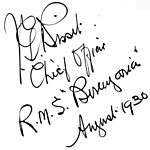 Chief Officer
R.M.S. "Berengaria"
August-1930